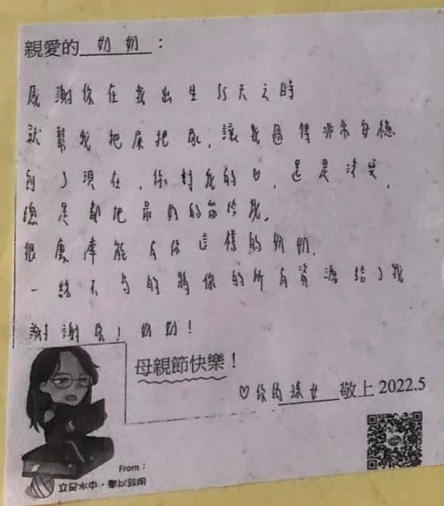 親愛的奶奶：
感謝你在我出生15天之時
就幫我把屎把尿，讓我過得非常安穩
到了現在，你對我的心，還是沒變，
總是都把最好的留給我。
很慶幸能有你這樣的奶奶，
一絲不苟的將你的所有資源給了我
謝謝您！奶奶！
母親節快樂！
♡你的孫女 敬上 2022.5
From：
立足水中・學以致用